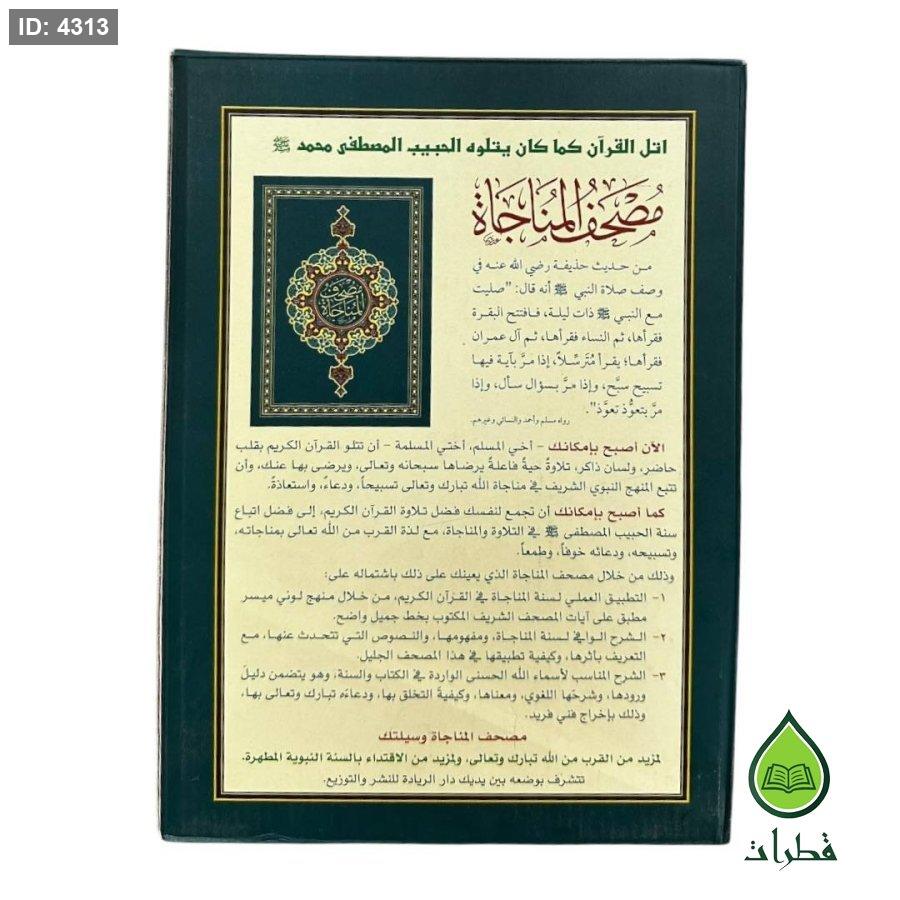 ID: 4313
اتل القرآن كما كان يتلوه الحبيب المصطفى محمد ﷺ
مُصْحَفُ المُنَاجَاة
مصحف
المناجاة
من حديث حذيفة رضي الله عنه في
وصف صلاة النبي ﷺ أنه قال: "صليت
مع النبي ﷺ ذات ليلة، فافتتح البقرة
فقرأها، ثم النساء فقرأها، ثم آل عمران
فقرأها؛ يقرأ مُتَرسِّلاً، إذا مرَّ بآية فيها
تسبيح سبَّح، وإذا مرَّ بسؤال سأل، وإذا
مرَّ بتعوُّذ تعوَّذ".
رواه مسلم وأحمد والنسائي وغيرهم.
الآن أصبح بإمكانك - أخي المسلم، أختي المسلمة - أن تتلو القرآن الكريم بقلب
حاضر، ولسان ذاكر، تلاوةً حيةً فاعلةً يرضاها سبحانه وتعالى، ويرضى بها عنك، وأن
تتبع المنهج النبوي الشريف في مناجاة الله تبارك وتعالى تسبيحاً، ودعاءً، واستعاذةً.
كما أصبح بإمكانك أن تجمع لنفسك فضل تلاوة القرآن الكريم، إلى فضل اتباع
سنة الحبيب المصطفى ﷺ في التلاوة والمناجاة، مع لذة القرب من الله تعالى بمناجاته،
وتسبيحه، ودعائه خوفاً، وطمعاً.
وذلك من خلال مصحف المناجاة الذي يعينك على ذلك باشتماله على:
١- التطبيق العملي لسنة المناجاة في القرآن الكريم، من خلال منهج لوني ميسر
مطبق على آيات المصحف الشريف المكتوب بخط جميل واضح.
٢- الشرح الوافي لسنة المناجاة، ومفهومها، والنصوص التي تتحدث عنها، مع
التعريف بأثرها، وكيفية تطبيقها في هذا المصحف الجليل.
٣- الشرح المناسب لأسماء الله الحسنى الواردة في الكتاب والسنة، وهو يتضمن دليلَ
ورودها، وشرحَها اللغوي، ومعناها، وكيفيةَ التخلق بها، ودعاءَه تبارك وتعالى بها،
وذلك بإخراج فني فريد.
مصحف المناجاة وسيلتك
لمزيد من القرب من الله تبارك وتعالى، ولمزيد من الاقتداء بالسنة النبوية المطهرة.
تتشرف بوضعه بين يديك دار الريادة للنشر والتوزيع.
قطرات